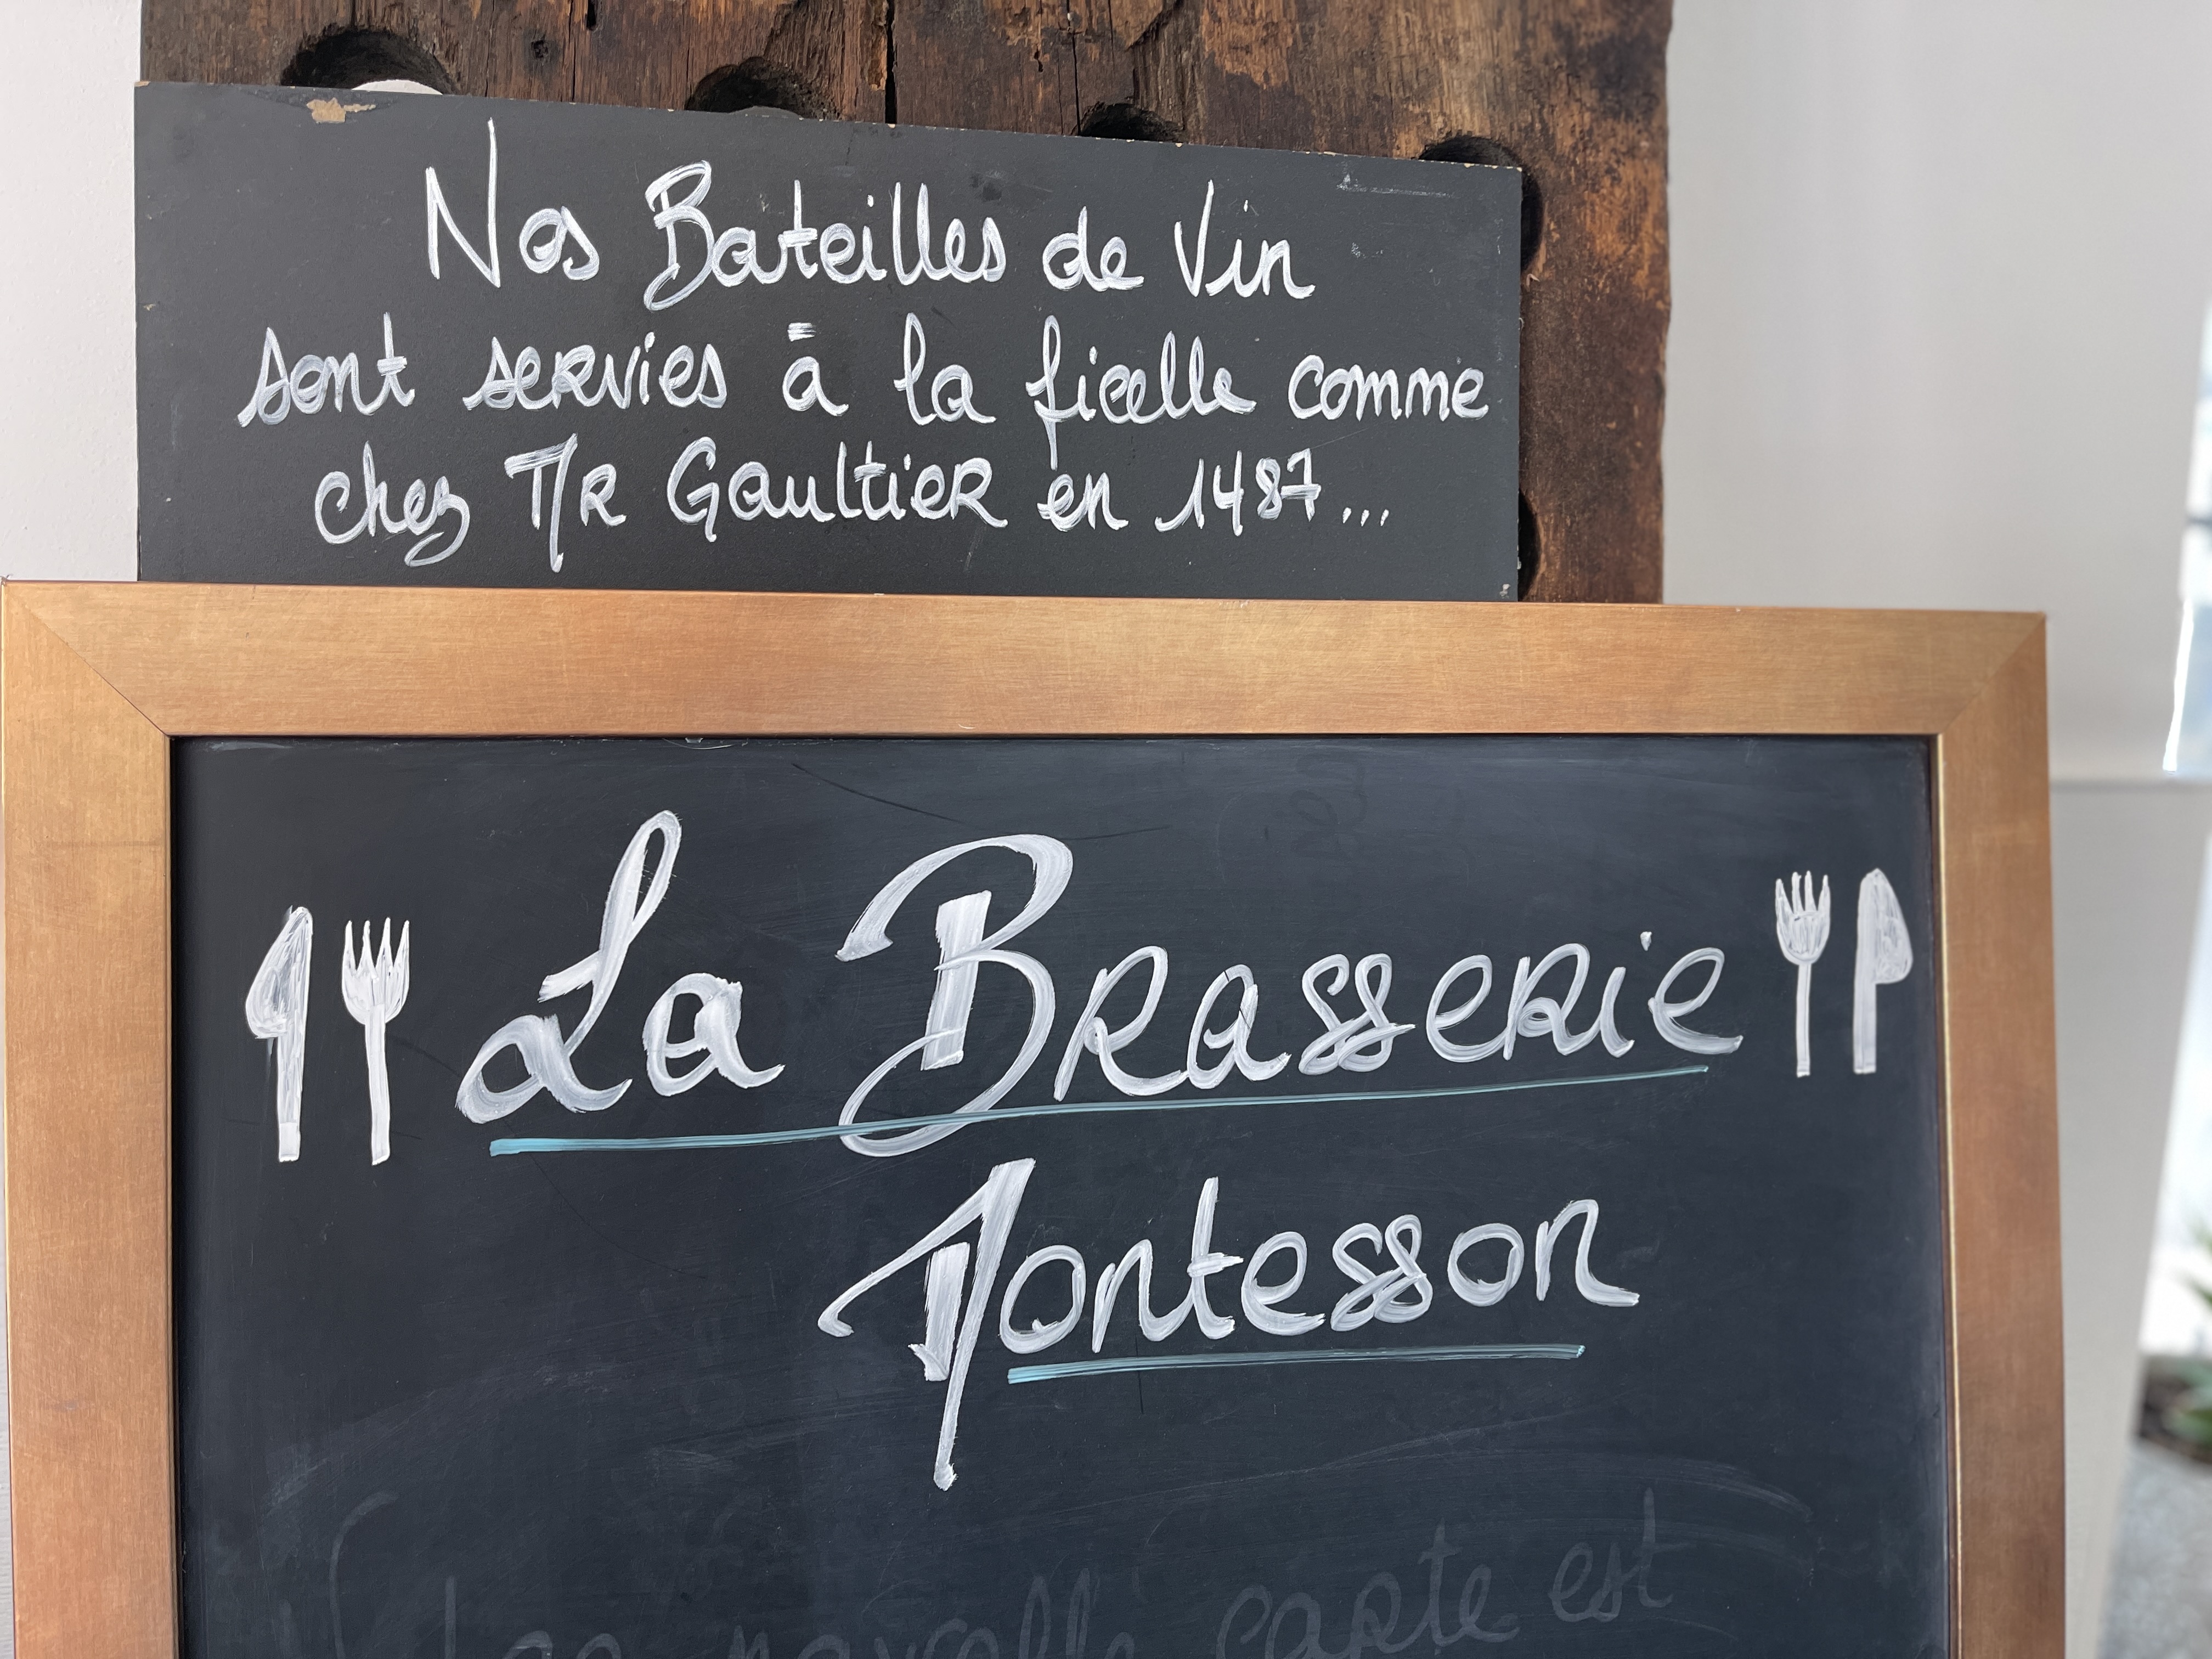 Nos Bouteilles de Vin
sont servies à la ficelle comme
chez MR Gaultier en 1487...
La Brasserie
Montesson
La nouvelle carte est